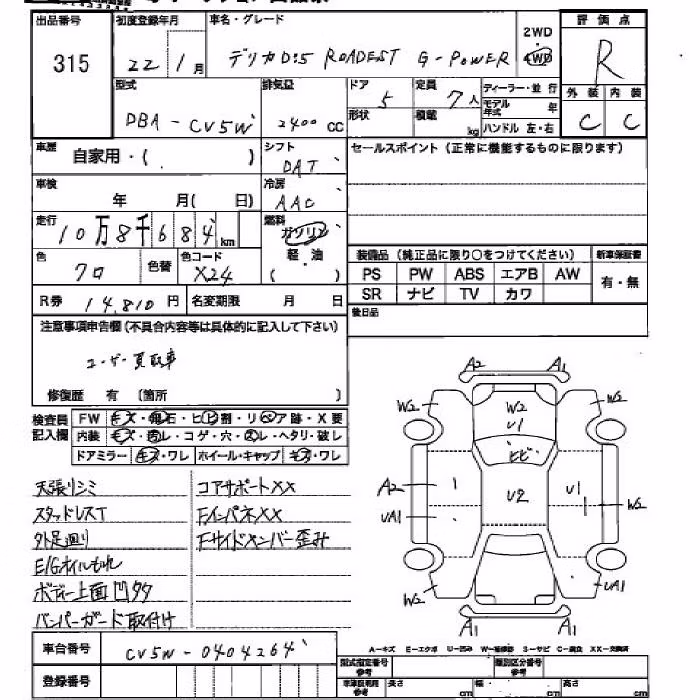 出品番号 初度登録年月 車名・グレード 2WD 評価点
315 22 1月 デリカD:5 ROADEST G-POWER 4WD R
型式 排気量 ドア 定員 ディーラー・並行 外装 内装
DBA-CV5W 2400CC 5 7人 モデル年式 年 C C
形状 積載 kg ハンドル 左・右
車歴 自家用・( ) シフト セールスポイント(正常に機能するものに限ります)
DAT
車検 年 月( 日) 冷房
AAC
走行 10万8千684km 燃料 ガソリン
軽・油
( )
色 クロ 色替 色コード X24
装備品(純正品に限り○をつけてください) 新車保証書
PS PW ABS エアB AW 有・無
SR ナビ TV カワ
R券 14,810円 名変期限 月 日 後日品
注意事項申告欄(不具合内容等は具体的に記入して下さい)
ユーザー買取車
修復歴 有 (箇所 )
検査員記入欄 FW キズ・飛石・ヒビ割・リペア跡・X要
内装 キズ・汚レ・コゲ・穴・スレ・ヘタリ・破レ
ドアミラー キズ・ワレ ホイール・キャップ キズ・ワレ
天張リシミ コアサポートXX
スタッドレスT FインパネXX
外足廻り Fサイドメンバー歪み
E/Gオイルもれ
ボディー上面凹タタ
バンパーガード取付け
A2 A1
W2 W2 W2
U1
ヒビ
A2 U2 U1 W2
UA1
W2 UA1
A1 A1
A-キズ E-エクボ U-凹み W-補修跡 S-サビ C-腐食 XX-交換済
車台番号 CV5W-0404264
登録番号
型式指定番号 類別区分番号
長さ cm 幅 cm 高さ cm